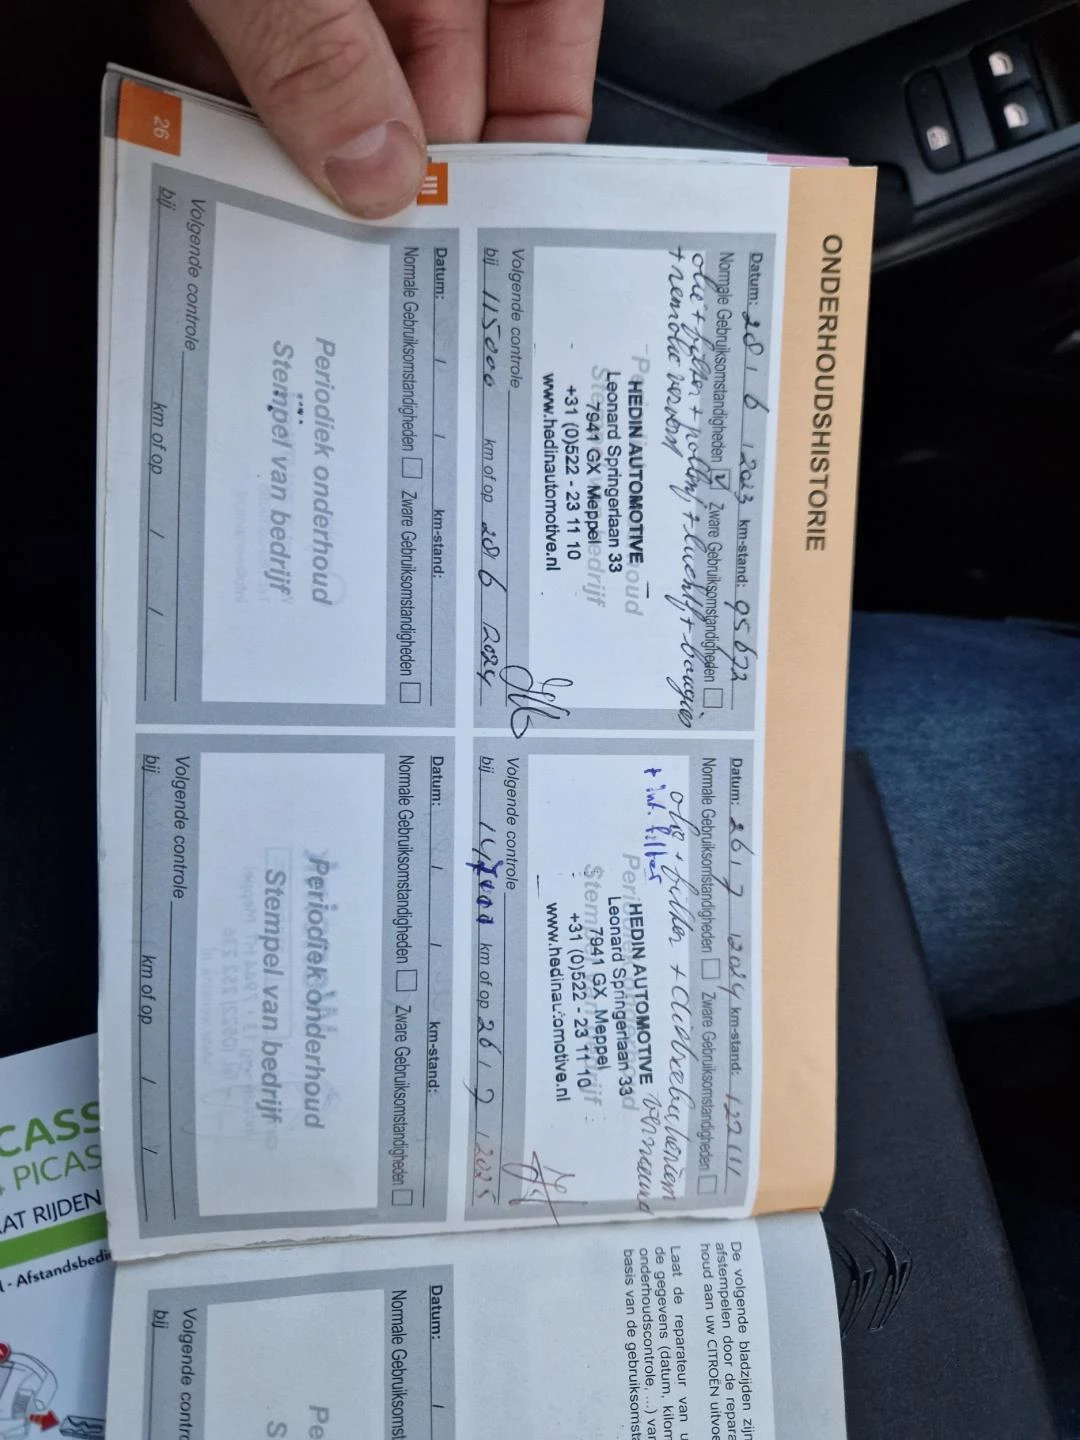 ONDERHOUDSHISTORIE
Datum: 28 / 6 / 2023 km-stand: 95672
Normale Gebruiksomstandigheden ☑ Zware Gebruiksomstandigheden ☐
olie + filter + pollenf + luchtf + bougies
+ remolie ververst
Periodiek onderhoud
Stempel van bedrijf
HEDIN AUTOMOTIVE
Leonard Springerlaan 33
7941 GX Meppel
+31 (0)522 - 23 11 10
www.hedinautomotive.nl
Volgende controle
bij 115000 km of op 28 6 2024
Datum: 26 / 7 / 2024 km-stand: 122111
Normale Gebruiksomstandigheden ☐ Zware Gebruiksomstandigheden ☐
olie + filter + distributieriem
vernieuwd
+ int. filter
Periodiek onderhoud
Stempel van bedrijf
HEDIN AUTOMOTIVE
Leonard Springerlaan 33
7941 GX Meppel
+31 (0)522 - 23 11 10
www.hedinautomotive.nl
Volgende controle
bij km of op 26 / 7 / 2025
III
Datum: / / km-stand:
Normale Gebruiksomstandigheden ☐ Zware Gebruiksomstandigheden ☐
Periodiek onderhoud
Stempel van bedrijf
Volgende controle
bij km of op / /
Datum: / / km-stand:
Normale Gebruiksomstandigheden ☐ Zware Gebruiksomstandigheden ☐
Periodiek onderhoud
Stempel van bedrijf
Volgende controle
bij km of op / /
26
De volgende bladzijden zijn
afstempelen door de repara
houd aan uw CITROËN uitvoe
Laat de reparateur van u
de gegevens (datum, kilom
onderhoudscontrole, ...) van
basis van de gebruiksomsta
Datum: /
Normale Gebruiksomst
Pe
S
Volgende contro
bij
CASS
PICAS
AT RIJDEN
- Afstandsbedi